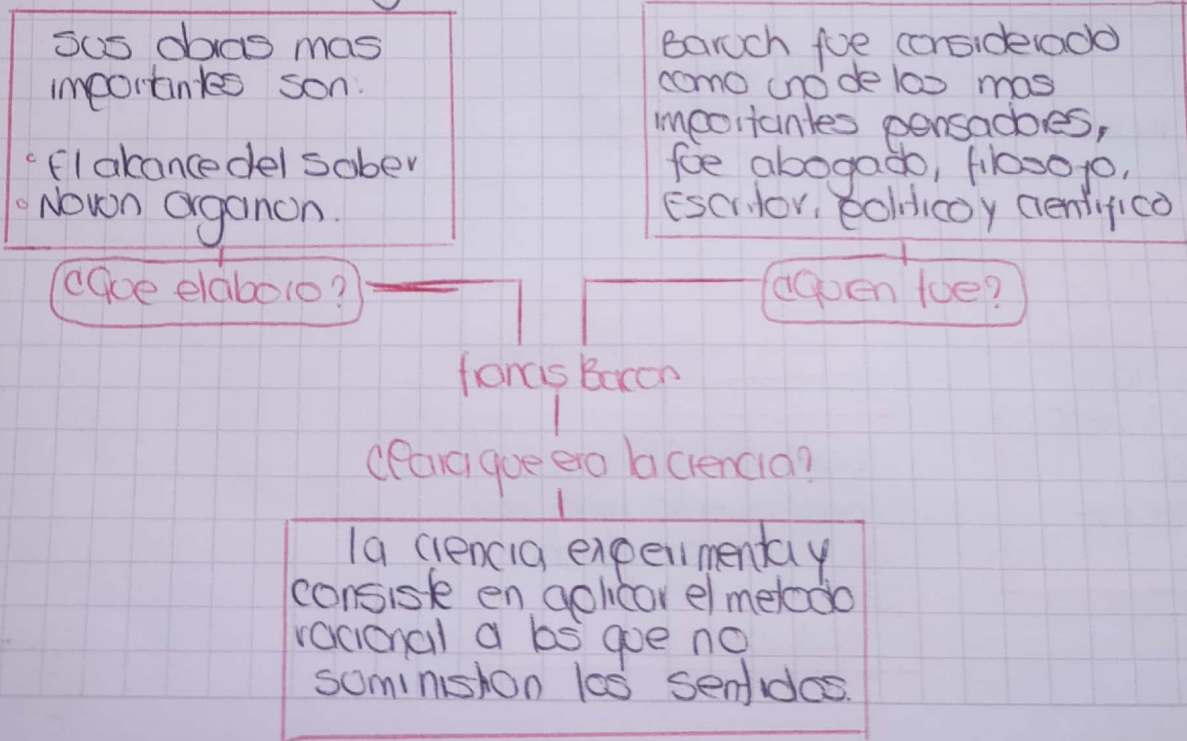 sus obras mas
importantes son:
• El alcance del saber
• Novon organon.
Baruch fue considerado
como uno de los mas
importantes pensadores,
fue abogado, filosofo,
Escritor, politico y cientifico
¿Que elaboro?
¿Quen fue?
francis Bacon
¿Para que era la ciencia?
la ciencia experimenta y
consiste en aplicar el metodo
racional a los que no
suministran los sentidos.